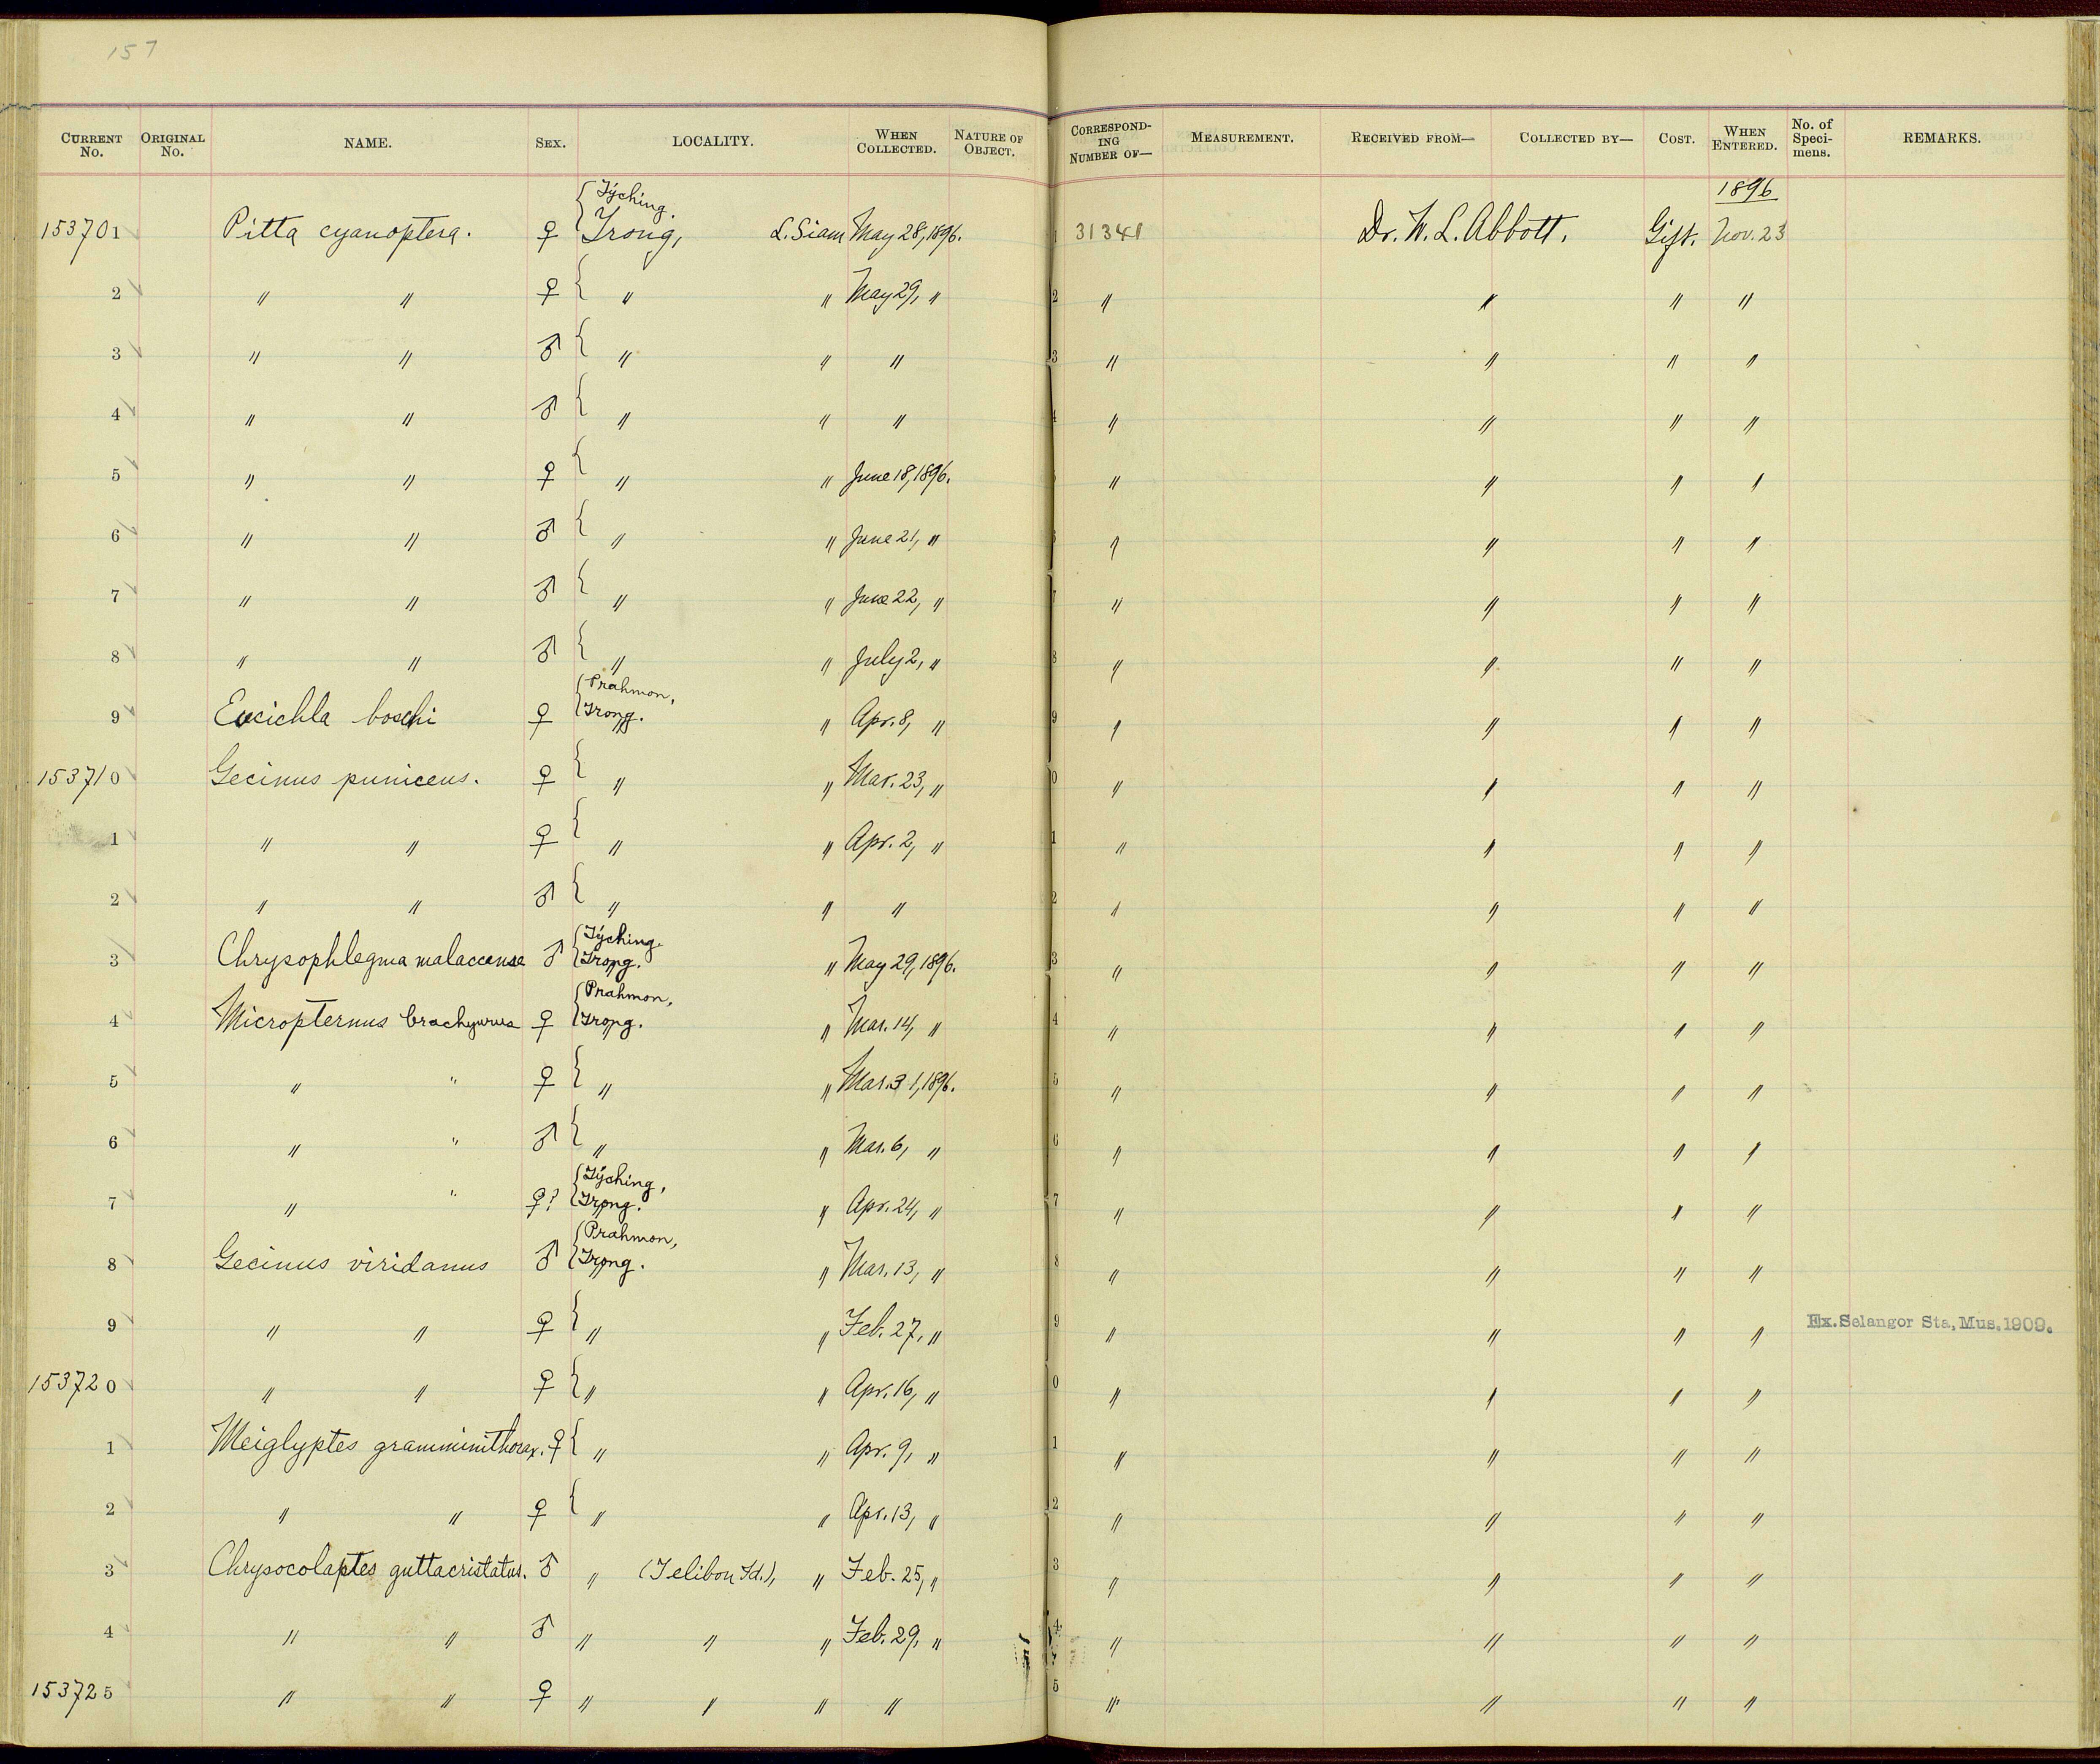 157
CURRENT No. ORIGINAL No. NAME. SEX. LOCALITY. WHEN COLLECTED. NATURE OF OBJECT. CORRESPONDING NUMBER OF— MEASUREMENT. RECEIVED FROM— COLLECTED BY— COST. WHEN ENTERED. No. of Specimens. REMARKS.
1896
153701 Pitta cyanoptera. ♀ { Týching. Trong, L. Siam May 28, 1896. 1 31341 Dr. W. L. Abbott. Gift. Nov. 23
2 " " ♀ { " " May 29, " 2 " " " "
3 " " ♂ { " " " 3 " " " "
4 " " ♂ { " " " 4 " " " "
5 " " ♀ { " " June 18, 1896. " " " "
6 " " ♂ { " " June 21, " " " " "
7 " " ♂ { " " June 22, " 7 " " " "
8 " " ♂ { " " July 2, " 8 " " " "
9 Eucichla boschi ♀ { Prahmon, Trong. " Apr. 8, " 9 " " " "
153710 Gecinus puniceus. ♀ { " " Mar. 23, " 0 " " " "
1 " " ♀ { " " Apr. 2, " 1 " " " "
2 " " ♂ { " " " 2 " " " "
3 Chrysophlegma malaccense ♂ { Týching. Trong. " May 29, 1896. 3 " " " "
4 Micropternus brachyurus ♀ { Prahmon, Trong. " Mar. 14, " 4 " " " "
5 " " ♀ { " " Mar. 31, 1896. 5 " " " "
6 " " ♂ { " " Mar. 6, " 6 " " " "
7 " " ♀? { Týching, Trong. " Apr. 24, " 7 " " " "
8 Gecinus viridanus ♂ { Prahmon, Trong. " Mar. 13, " 8 " " " "
9 " " ♀ { " " Feb. 27, " 9 " " " " Ex. Selangor Sta. Mus. 1909.
153720 " " ♀ { " " Apr. 16, " 0 " " " "
1 Meiglyptes gramminithorax. ♀ { " " Apr. 9, " 1 " " " "
2 " " ♀ { " " Apr. 13, " 2 " " " "
3 Chrysocolaptes guttacristatus. ♂ " (Telibon Id.), " Feb. 25, " 3 " " " "
4 " " ♂ " " " Feb. 29, " 4 " " " "
153725 " " ♀ " " " " 5 " " " "